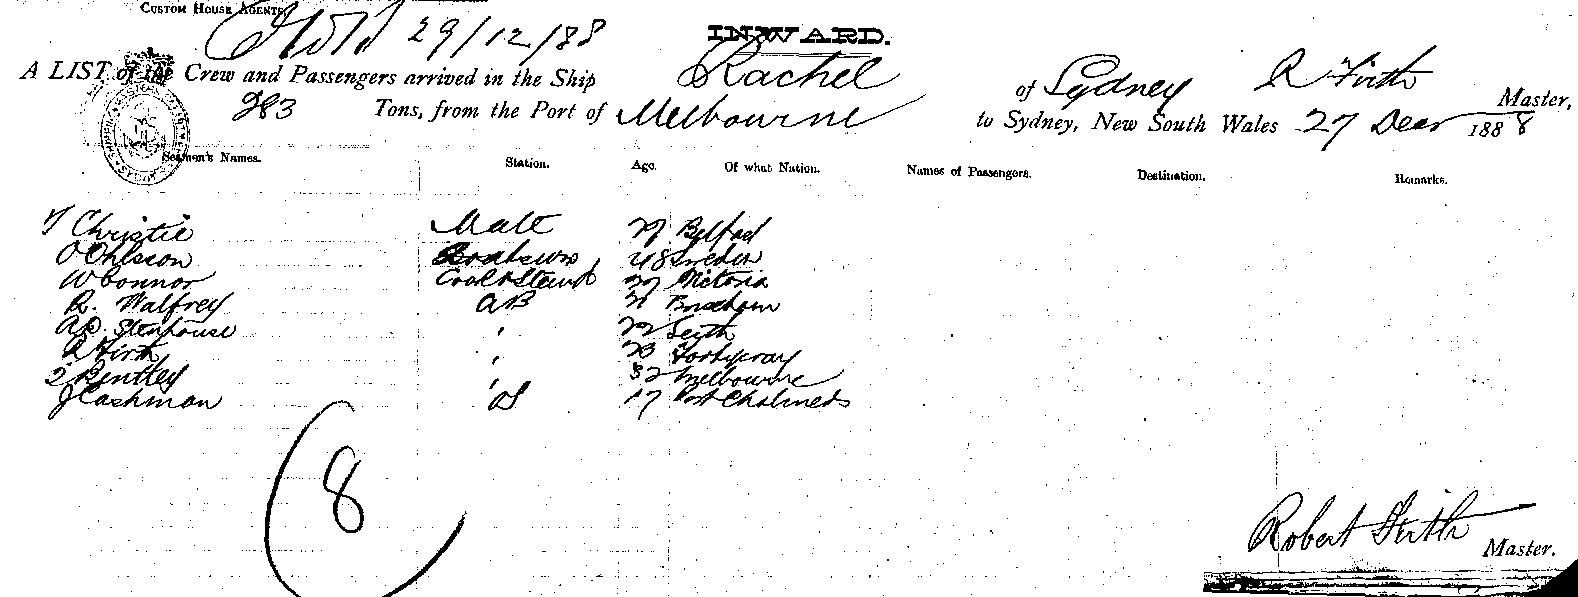 CUSTOM HOUSE AGENTS.
29/12/88
INWARD.
A LIST of the Crew and Passengers arrived in the Ship Rachel of Sydney R Firth Master,
283 Tons, from the Port of Melbourne to Sydney, New South Wales 27 Decr 1888
Seamen's Names. Station. Age. Of what Nation. Names of Passengers. Destination. Remarks.
Christie Mate 29 Belfast
O Ohlsson Boatswn 48 Sweden
W Connor Cook & Steward 27 Victoria
R. Walfrey AB Brixham
Stenhouse " 22 Leith
R Firth "
Bentley " 32 Melbourne
J Cashman OS 17 Port Chalmers
8
Robert Firth Master.